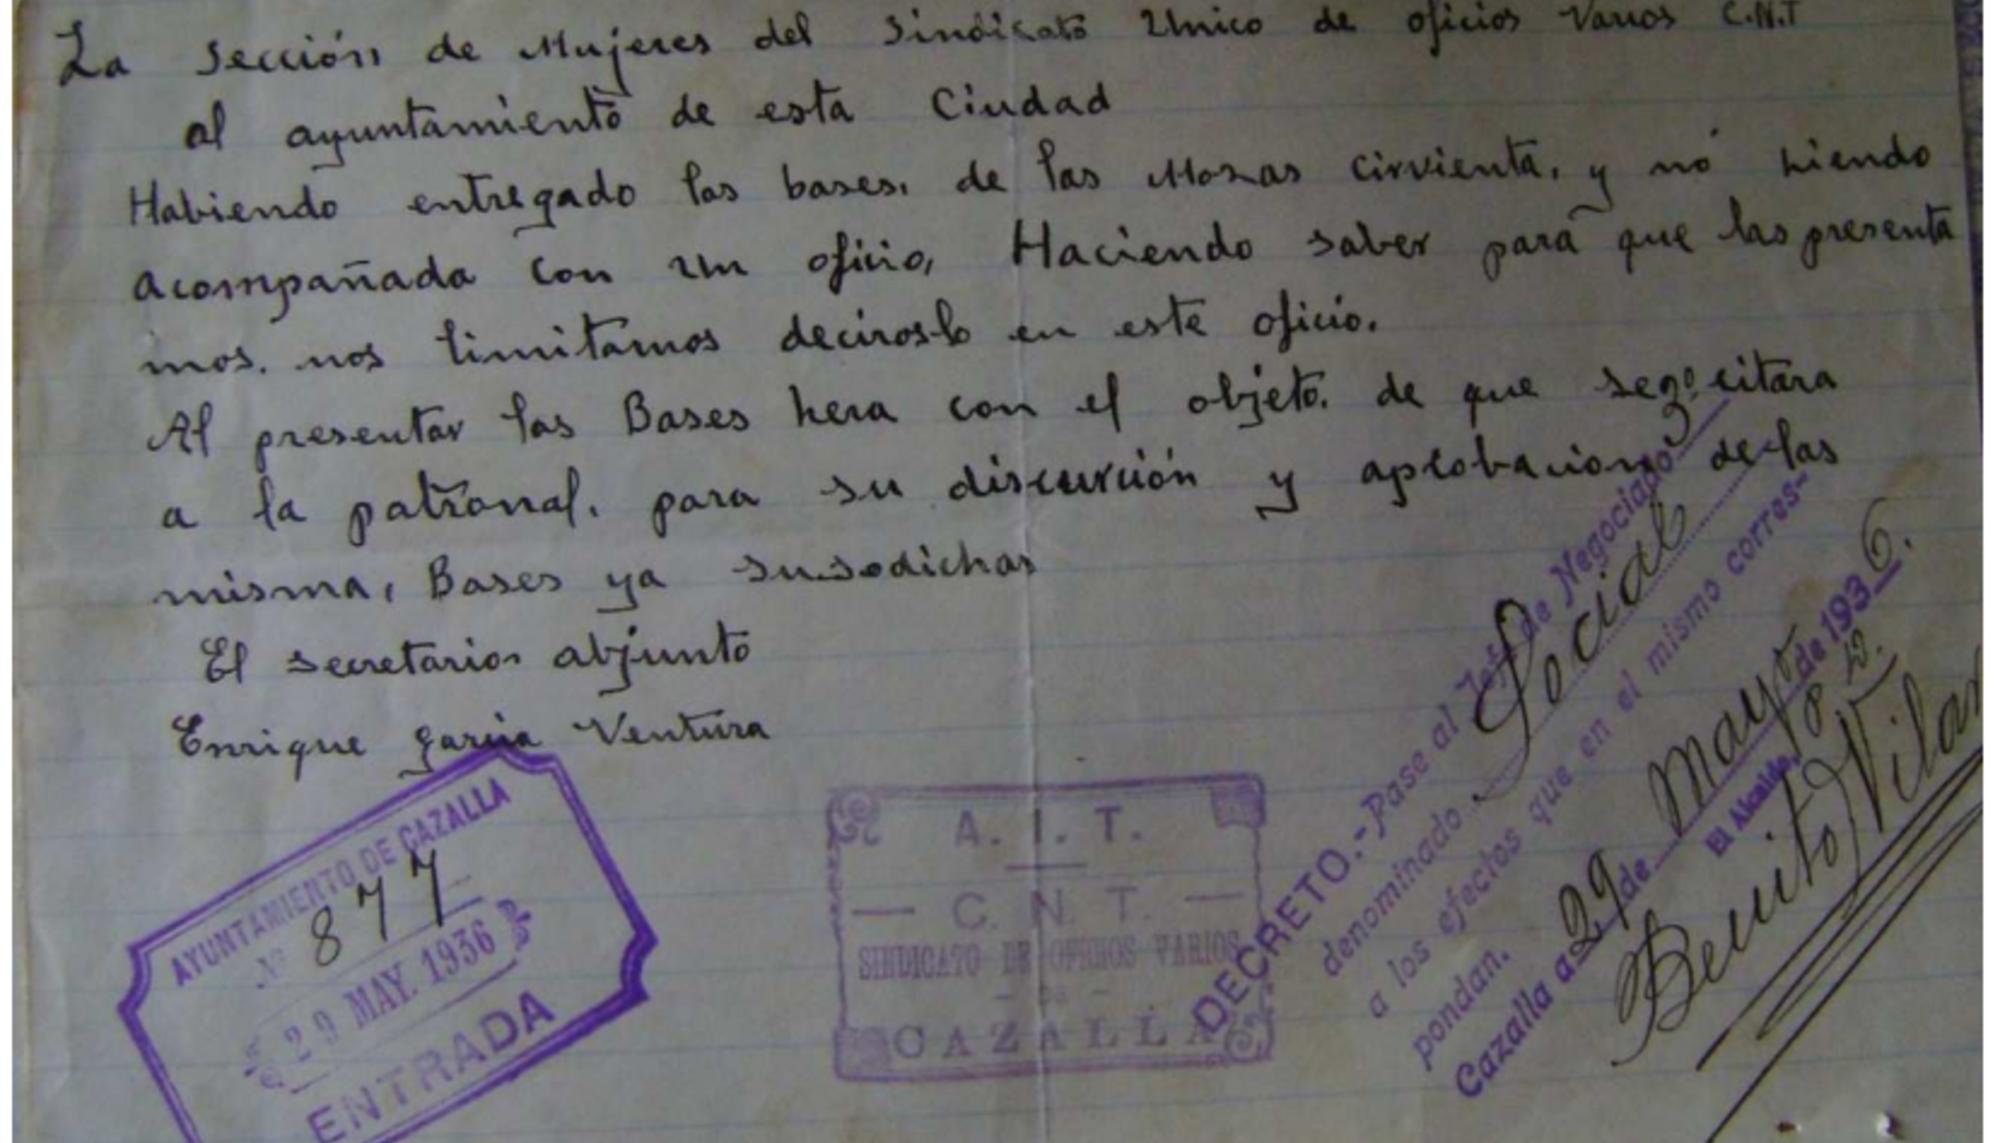 La Sección de Mujeres del Sindicato Unico de oficios Varios C.N.T
al ayuntamiento de esta Ciudad
Habiendo entregado las bases. de las Mozas cirvienta. y nó siendo
acompañada con un oficio, Haciendo saber para que las presenta
mos. nos limitamos deciroslo en este oficio.
Al presentar las Bases hera con el objeto. de que se citara
a la patronal. para su discurción y aprobacion de las
misma, Bases ya susodichas
El secretario abjunto
Enrique garcia Ventura
AYUNTAMIENTO DE CAZALLA
Nº 877
29 MAY. 1936
ENTRADA
A. I. T.
C. N. T.
SINDICATO DE OFICIOS VARIOS
- DE -
CAZALLA
DECRETO.- Pase al Jefe de Negociado
denominado Social
a los efectos que en el mismo corres-
pondan.
Cazalla a 29 de Mayo de 1936.
El Alcalde,
Benito Vilar